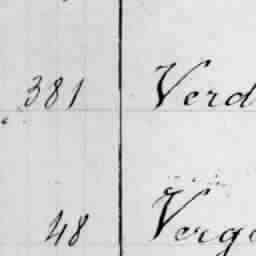 381 Verd
48 Verg